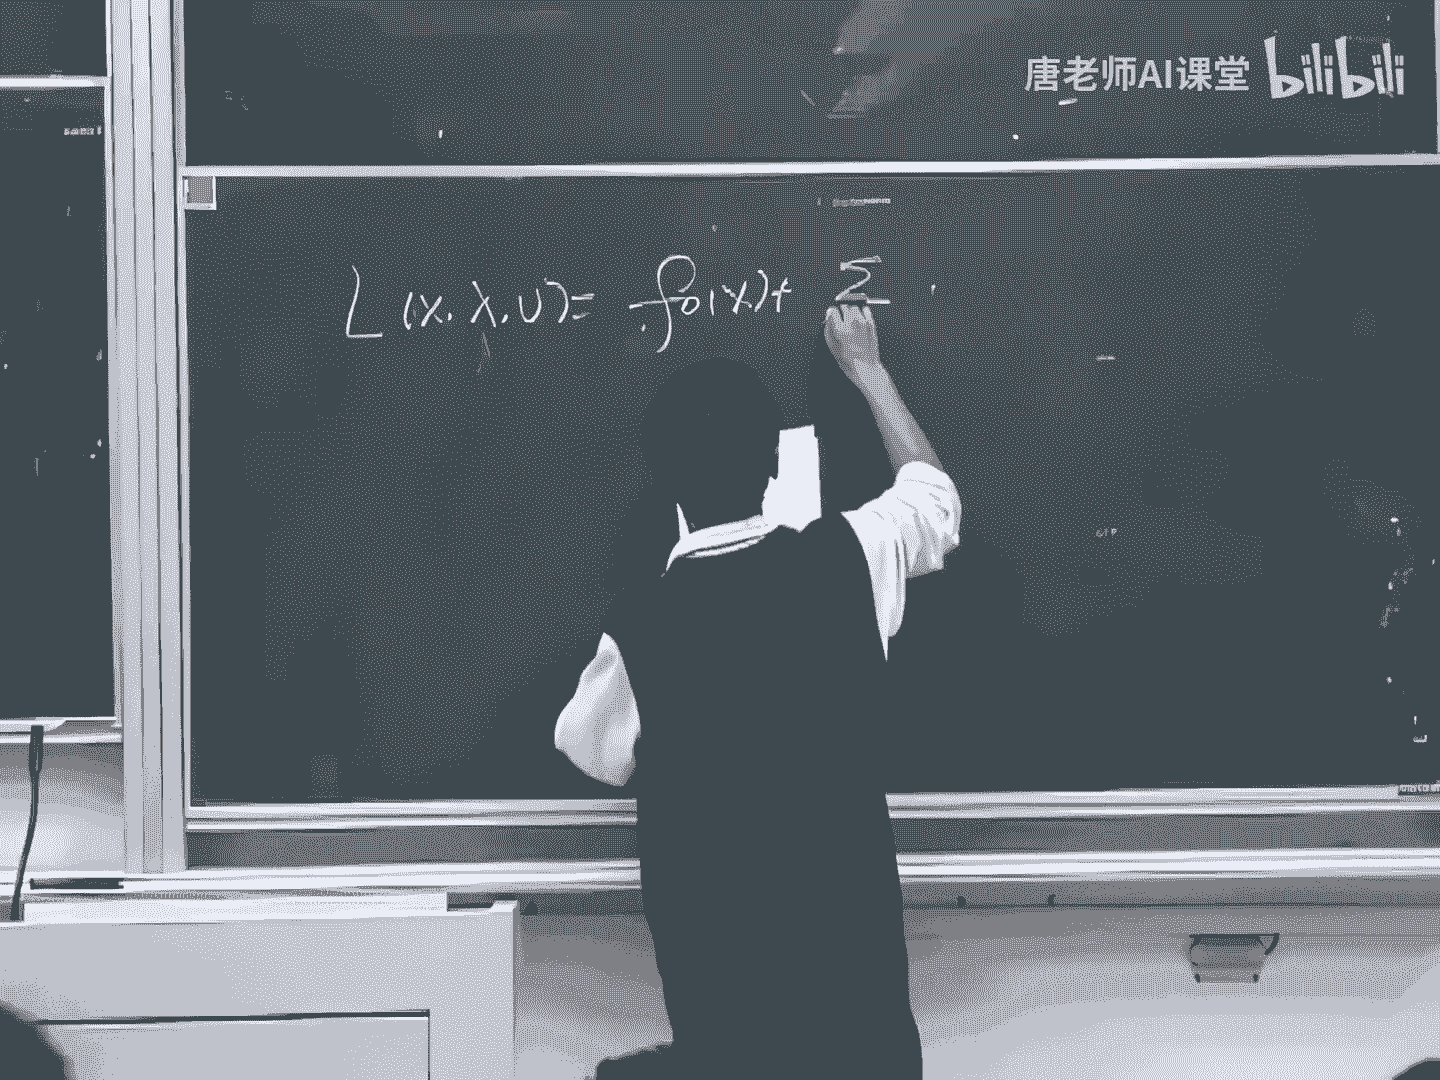 唐老师AI课堂 bilibili
L(x.λ.υ)= f₀(x)+ Σ